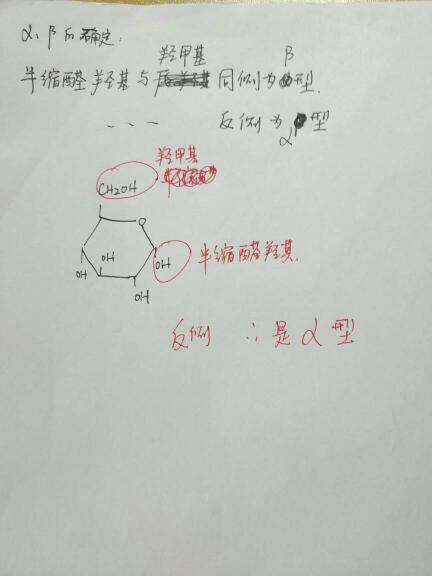 α、β的确定:
羟甲基 β
半缩醛羟基与 同侧为 型.
--- 反侧为 α型
羟甲基
CH2OH
O
OH OH 半缩醛羟基.
OH
OH
反侧 ∴是α型